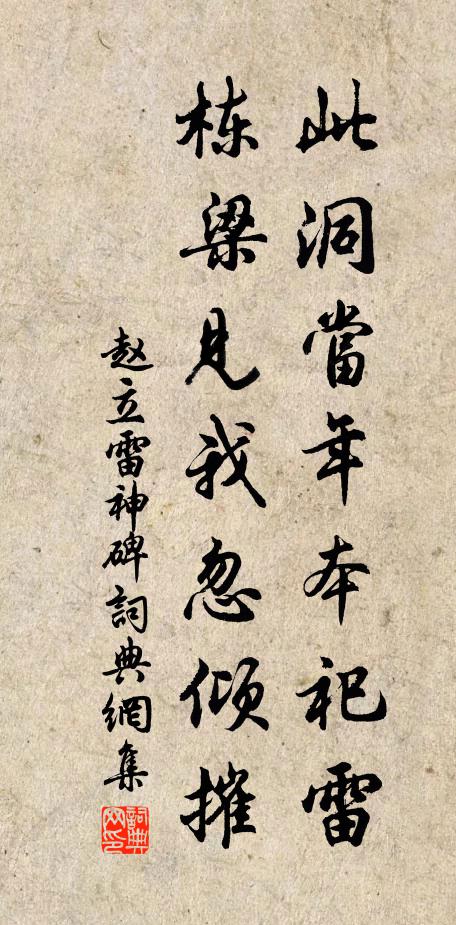 此洞當年本祀雷
栋梁見我忽傾摧
赵立雷神碑詞典網集
詞典网印